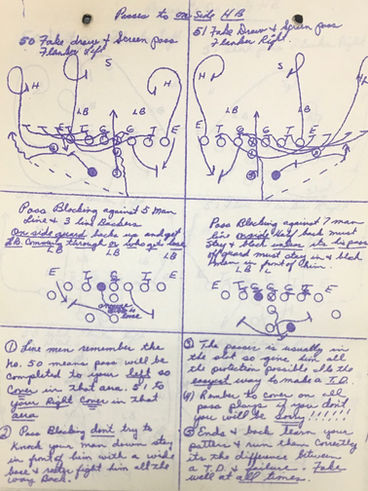 Passes to on Side H B
50 Fake draw & Screen pass
Flanker Left
51 Fake Draw & Screen pass
Flanker Right.
S
H
H
LB
LB
E T G G T E
S
H
H
LB
LB
E T G G T
Pass Blocking against 5 Man
Line & 3 line Backers
On side guard back up and get
LB. coming through or who gets loose
LB LB LB
E T G T E
anyone
loose
Pass Blocking against 7 man
Line onside back must
Stay & block unless its his pass
off guard must stay in & block
man in front of him.
LB L
E T G G T E
① Line men remember the
No. 50 means pass will be
completed to your left so
Cover in that area. 51 to
your Right Cover in that
area
② Pass Blocking don't try to
Knock your man down stay
in front of him with a wide
base & rooster fight him all the
way Back.
③ The passer is usually in
the slot so give him all
the protection possible its the
easiest way to make a T.D.
④ Remember to cover on all
pass plays if you don't
you will be Sorry !!!!!!!
⑤ Ends & back learn your
patterns & run them correctly
its the difference between
a T.D. & failure. Fake
well at all times.